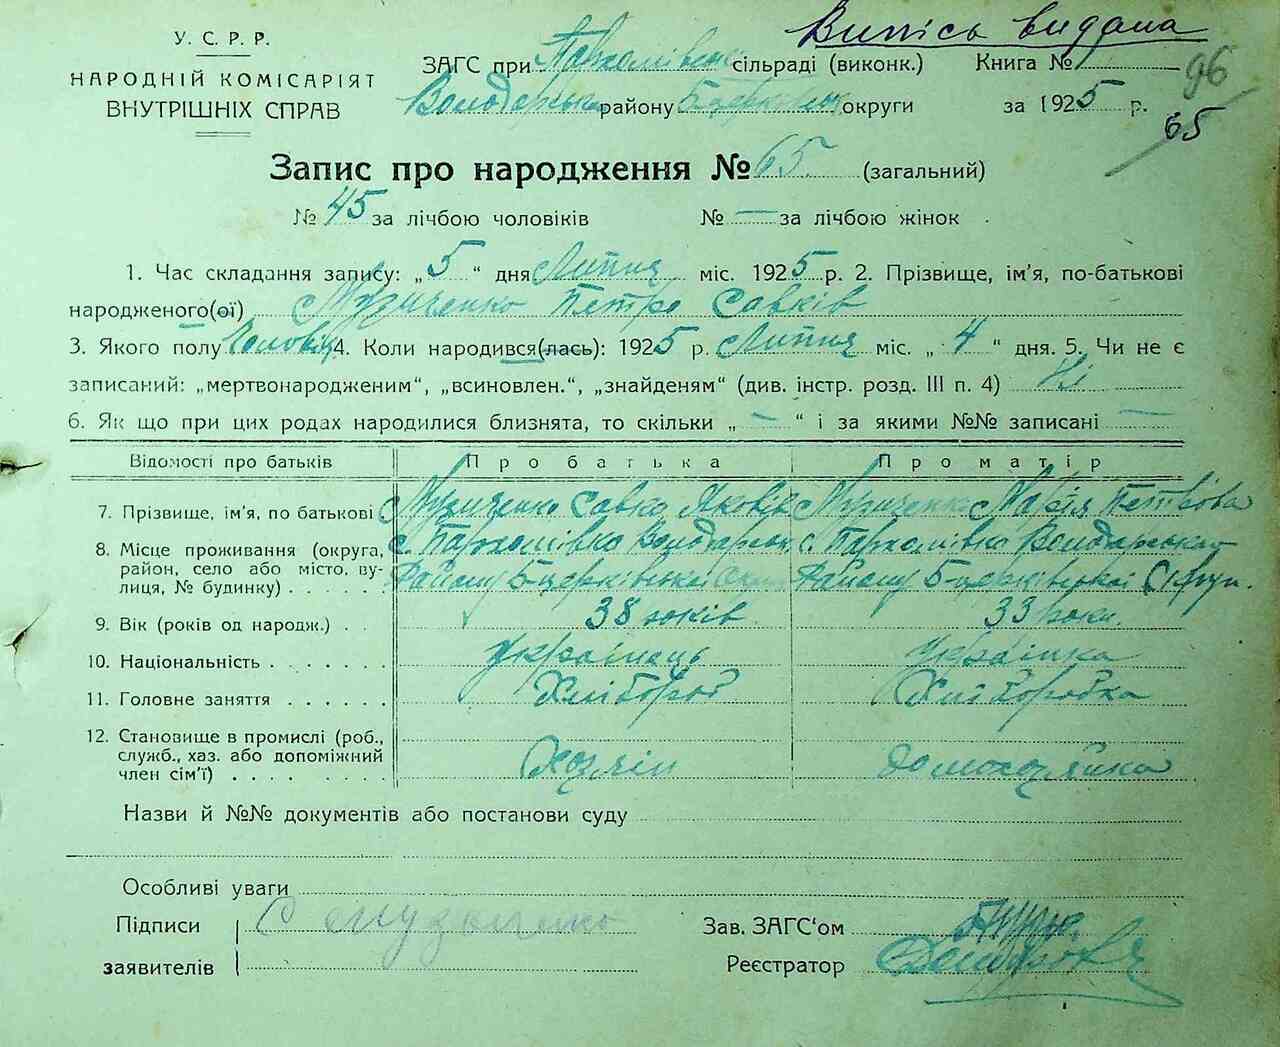 Випісь видана
У. С. Р. Р.
НАРОДНІЙ КОМІСАРІЯТ
ВНУТРІШНІХ СПРАВ
ЗАГС при Пархомівськ сільраді (виконк.) Книга №
96
Володарськ району Б-церківськ округи за 1925 р.
65
Запис про народження № 65. (загальний)
№ 45 за лічбою чоловіків № — за лічбою жінок
1. Час складання запису: „5" дня Липня міс. 1925 р. 2. Прізвище, ім'я, по-батькові
народженого(ої) Музиченко Петро Савків
3. Якого полу Чоловіч 4. Коли народився(лась): 1925 р. Липня міс. „4" дня. 5. Чи не є
записаний: „мертвонародженим", „всиновлен.", „знайденям" (див. інстр. розд. III п. 4) Ні
6. Як що при цих родах народилися близнята, то скільки „—" і за якими №№ записані —
Відомості про батьків Про батька Про матір
7. Прізвище, ім'я, по батькові Музиченко Савка Яковів Музиченко Марія Петрова
8. Місце проживання (округа, район, село або місто, вулиця, № будинку) с. Пархомівка Володарськ с. Пархомівка Володарського
Району Б-церківської Округи Району Б-церківської Округи.
9. Вік (років од народж.) 38 років 33 роки.
10. Національність Українець Українка
11. Головне заняття Хлібороб Хліборобка
12. Становище в промислі (роб., служб., хаз. або допоміжний член сім'ї) Хозяін домохозяйка
Назви й №№ документів або постанови суду
Особливі уваги
Підписи С Музиченко Зав. ЗАГС'ом
заявителів Реєстратор